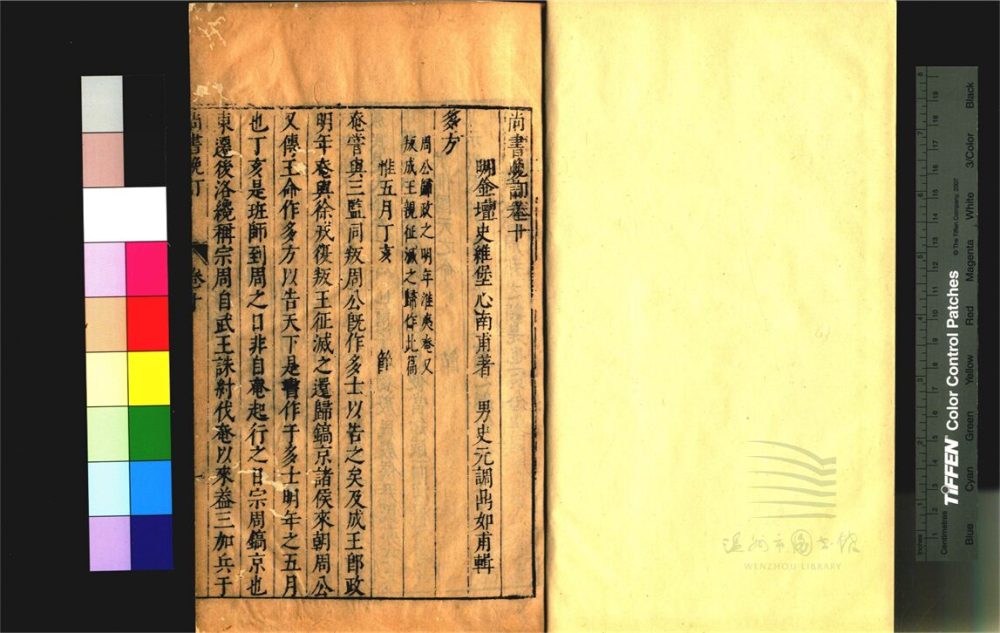 尚書晚訂卷十
明金壇史維堡心南甫著 男史元調鼎如甫輯
多方
周公歸政之明年淮夷奄又
叛成王親征滅之歸作此篇
惟五月丁亥 節
奄嘗與三監同叛周公旣作多士以告之矣及成王卽政
明年奄與徐戎復叛王征滅之還歸鎬京諸侯來朝周公
又傳王命作多方以告天下是書作于多士明年之五月
也丁亥是班師到周之日非自奄起行之日宗周鎬京也
東遷後洛纔稱宗周自武王誅紂伐奄以來葢三加兵于
尚書晚訂 卷十 一
溫州市圖書館
WENZHOU LIBRARY
TIFFEN Color Control Patches
© The Tiffen Company, 2007
Inches
Centimetres
Blue
Cyan
Green
Yellow
Red
Magenta
White
3/Color
Black